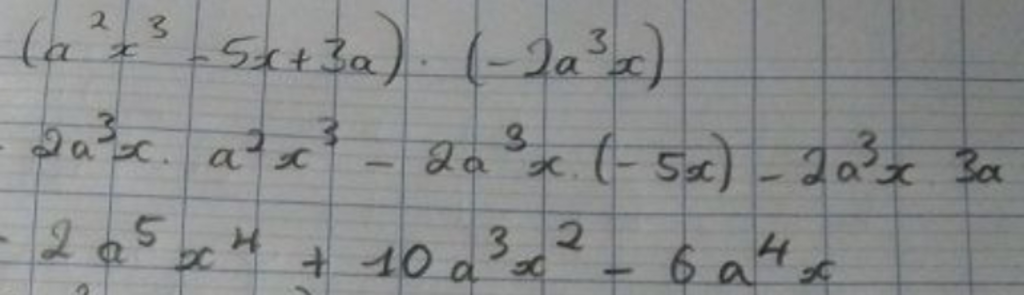 (a²x³ - 5x + 3a) · (-2a³x)
- 2a³x · a²x³ - 2a³x · (-5x) - 2a³x 3a
- 2a⁵x⁴ + 10a³x² - 6a⁴x